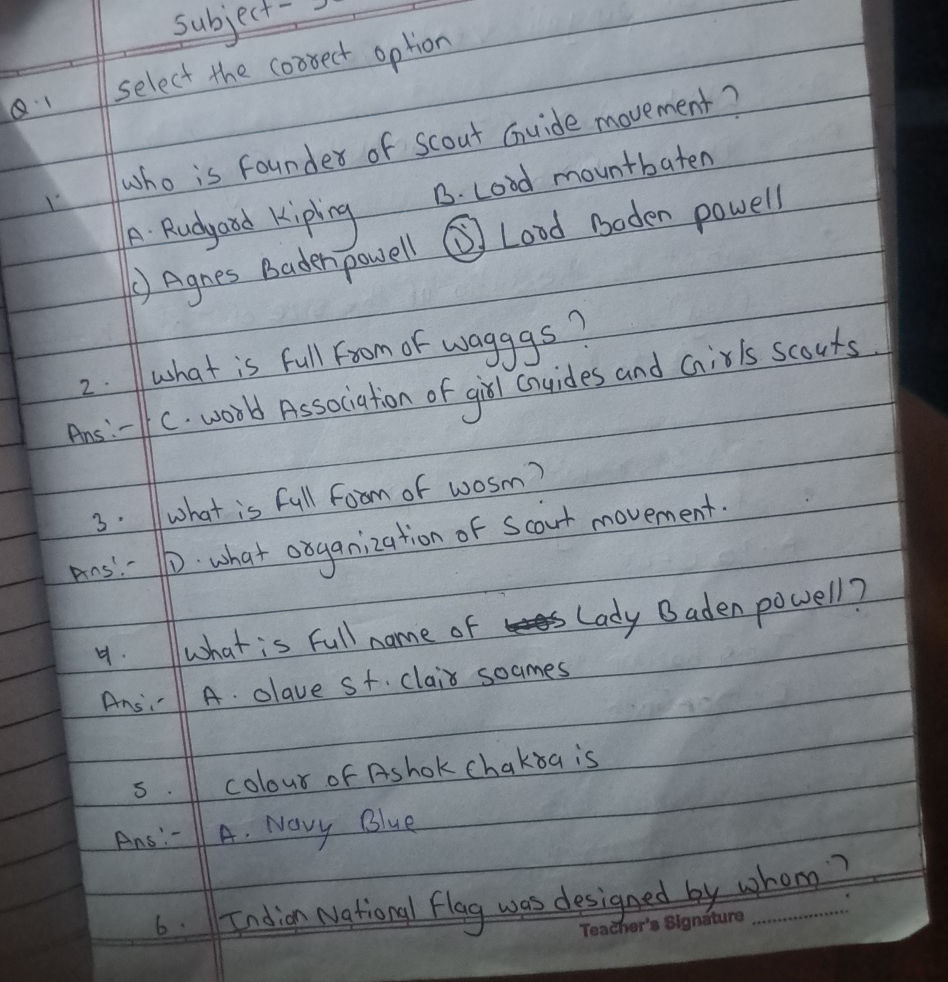 Subject-
Q.1 Select the correct option
1. Who is founder of Scout Guide movement?
A. Rudyard Kipling B. Lord mountbaten
C) Agnes Baden powell D) Lord Baden powell
2. What is full from of wagggs?
Ans:- C. world Association of girl Guides and Girls Scouts.
3. What is full form of wosm?
Ans:- D. what organization of Scout movement.
4. What is full name of Lady Baden powell?
Ans:- A. olave St. clair soames
5. colour of Ashok chakra is
Ans:- A. Navy Blue
6. Indian National flag was designed by whom?
Teacher's Signature ..................